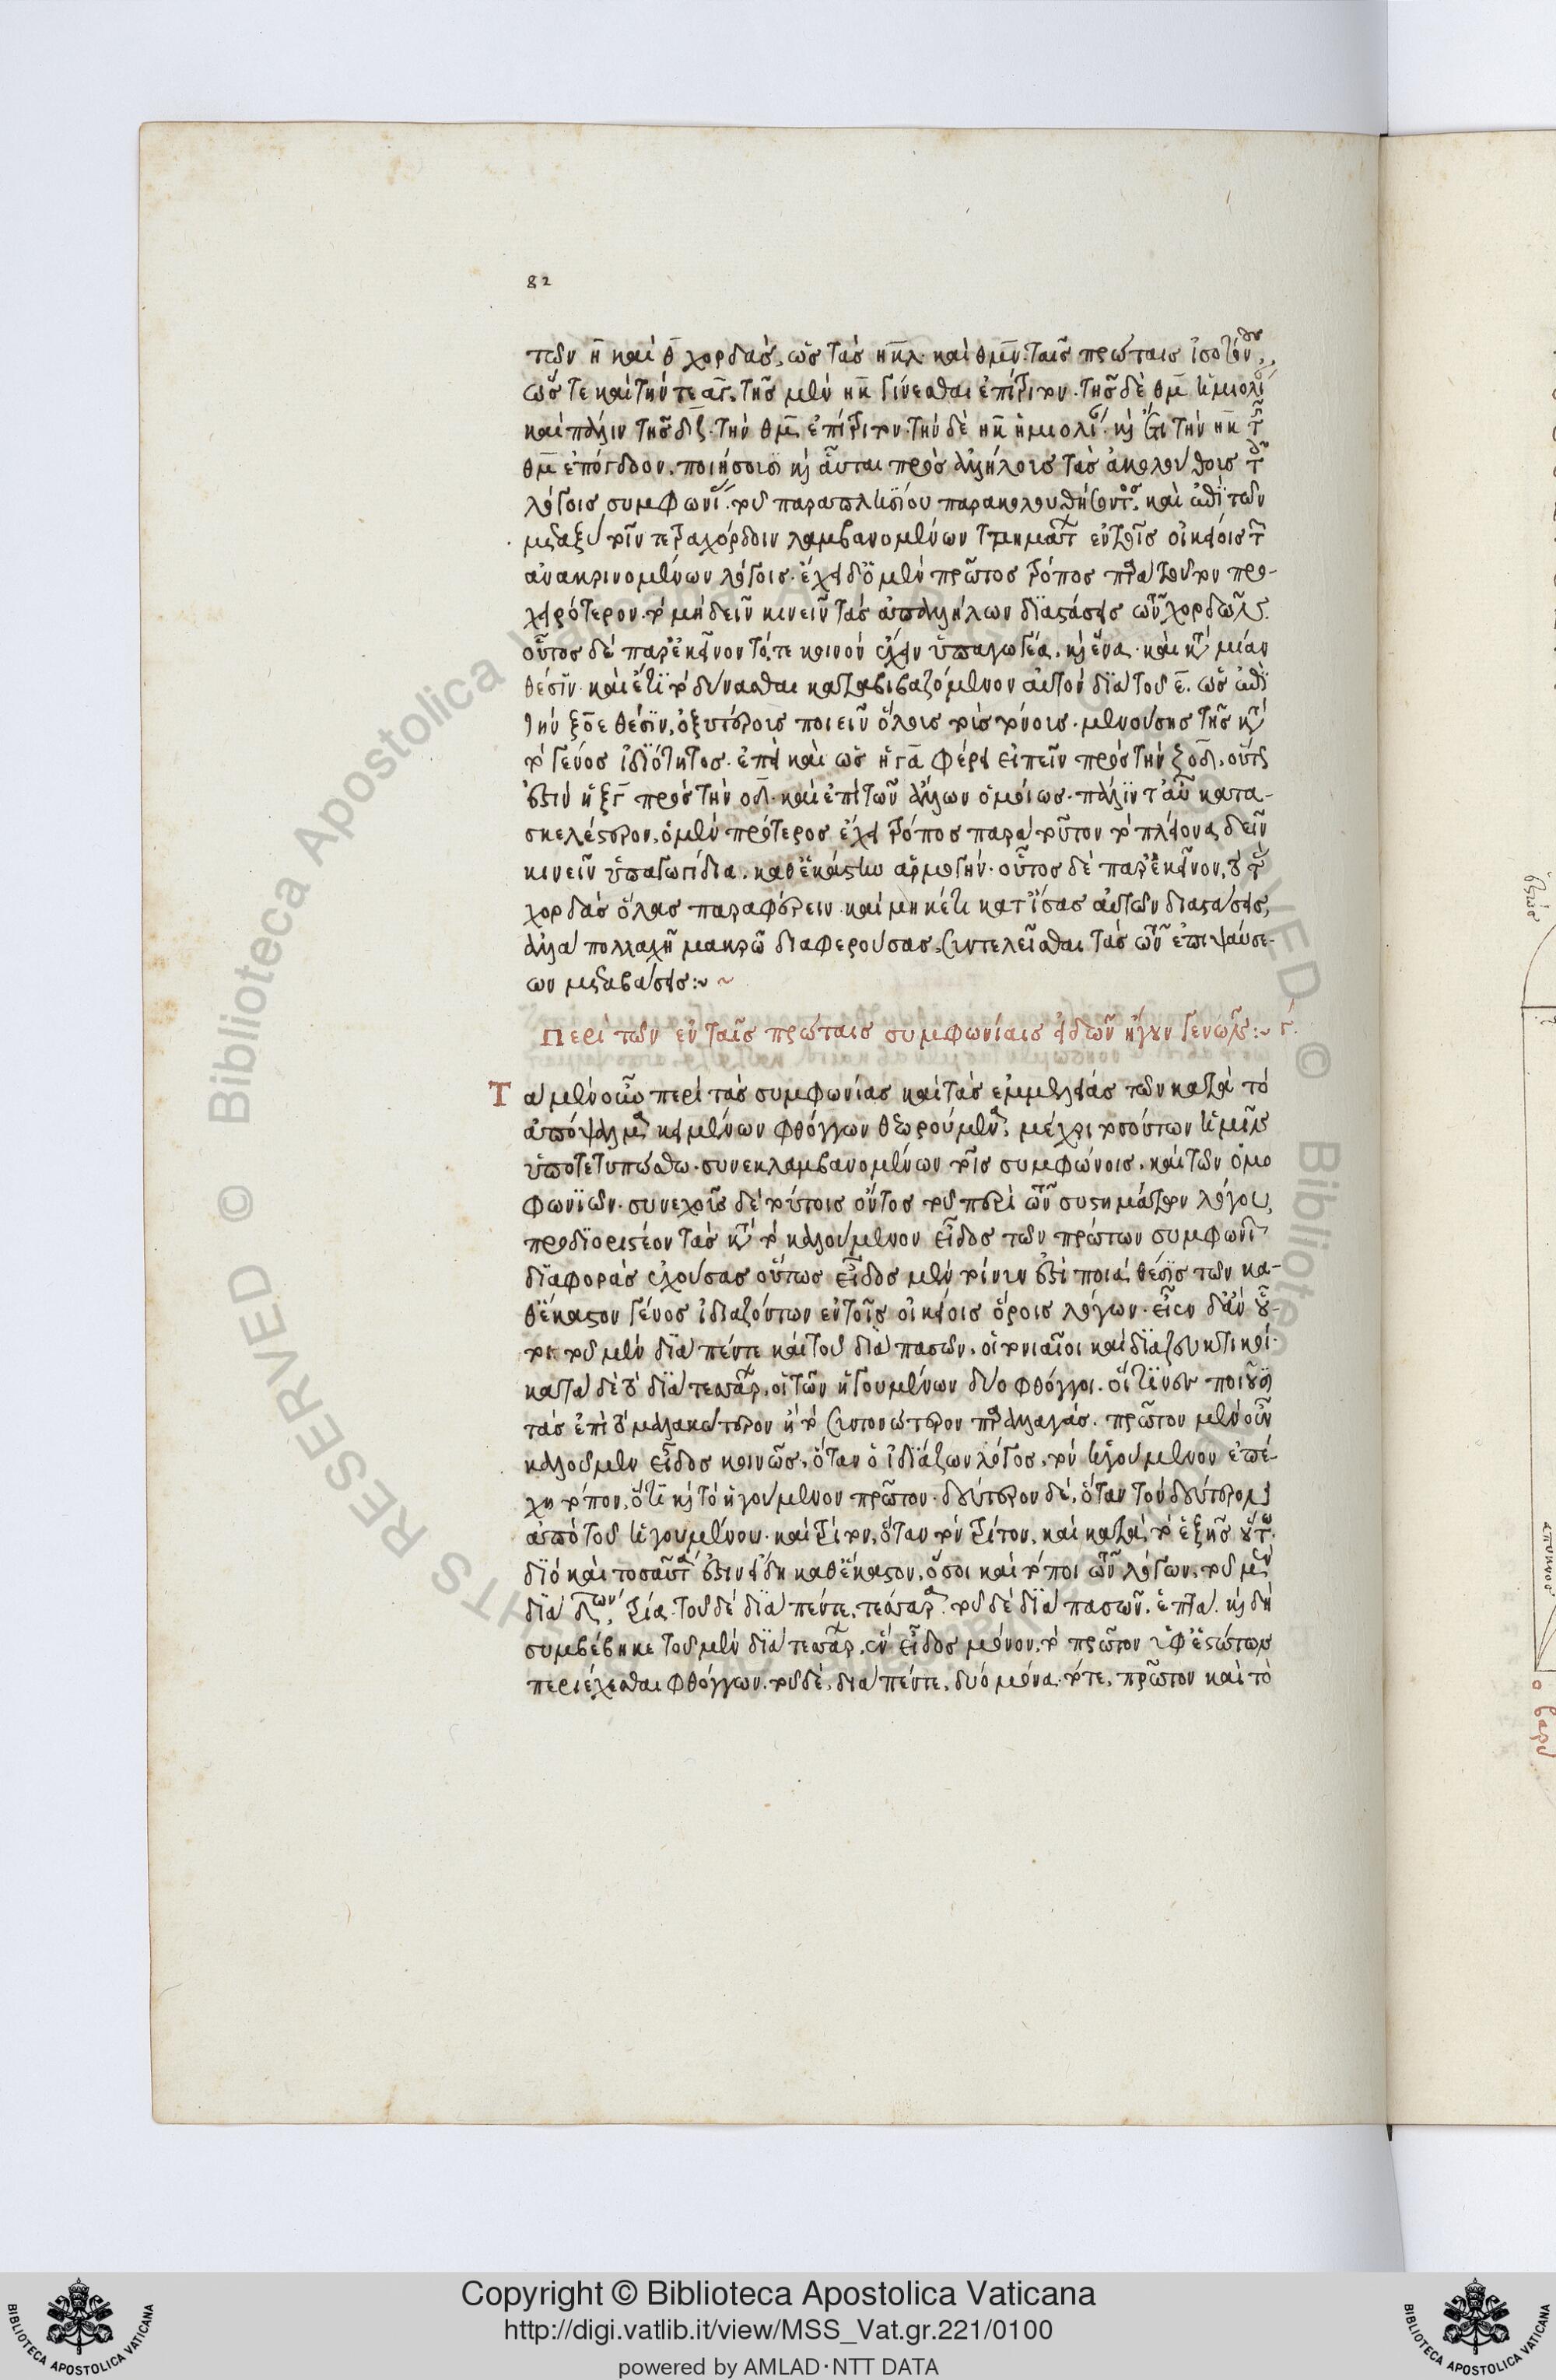 82
τῶν η καὶ θ χορδὰς, ὡς τὰς ηκλ καὶ θμν ταῖς πρώταις ἰσοτόνους,
ὥστε καὶ τὴν τε αγ, τῆς μὲν ηκ γίνεσθαι ἐπίτριτον. τῆς δὲ θμ ἡμιολί
καὶ πάλιν τῆς δζ. τὴν θμ ἐπίτριτον. τὴν δὲ ηκ ἡμιολί. κ ἔτι τὴν ηκ τ
θμ ἐπόγδοον. ποιήσουσι κ αὗται πρὸς ἀλλήλους τὰς ἀκολούθους τ
λόγοις συμφωνί. τοῦ παραπλησίου παρακολουθήσοντος καὶ ἐπὶ τῶν
μεταξὺ τοῖν τετραχόρδοιν λαμβανομένων τμημάτ ἐν τοῖς οἰκείοις τ
ἀνακρινομένων λόγοις. ἔχει δ ὁ μὲν πρῶτος τρόπος παρὰ τοῦτον προ-
χειρότερον. τὸ μὴ δεῖν κινεῖν τὰς ἀπ ἀλλήλων διαστάσεις τῶν χορδῶν.
οὗτος δὲ παρ ἐκεῖνον τό, τε κοινὸν ἔχειν ὑπαγωγέα. κ ἕνα. καὶ κατὰ μίαν
θέσιν. καὶ ἔτι τὸ δύνασθαι καταβιβαζόμενον αὐτὸν διὰ τοῦ ε. ὡς ἐπὶ
τὴν ξοε θέσιν, ὀξυτέρους ποιεῖν ὅλους τοὺς τόνους. μενούσης τῆς κατὰ
τὸ γένος ἰδιότητος. ἐπεὶ καὶ ὡς ἡ γα φέρε εἰπεῖν πρὸς τὴν ξοδ, οὕτως
ἐστὶν ἡ ξγ πρὸς τὴν οδ. καὶ ἐπὶ τῶν ἄλλων ὁμοίως. πάλιν τ αὖ κατα-
σκελέστερον, ὁ μὲν πρότερος ἔχει τρόπος παρὰ τοῦτον τὸ πλείονα δεῖν
κινεῖν ὑπαγωγίδια. καθ ἑκάστην ἁρμογήν. οὗτος δὲ παρ ἐκεῖνον, τὸ τ
χορδὰς ὅλας παραφέρειν καὶ μηκέτι κατ ἴσας αὐτῶν διαστάσεις,
ἀλλὰ πολλαχῆ μακρῷ διαφερούσας, συντελεῖσθαι τὰς τῶν ἐπιψαύσε-
ων μεταβάσεις:~ ~
Περὶ τῶν ἐν ταῖς πρώταις συμφωνίαις εἰδῶν ἤγουν γενῶν:~ γ.
Τὰ μὲν οὖν περὶ τὰς συμφωνίας καὶ τὰς ἐμμελείας τῶν κατὰ τὸ
ἀπόψαλμα κειμένων φθόγγων θεωρούμενα, μέχρι τοσούτων ἡμῖν
ὑποτετυπώσθω. συνεκλαμβανομένων τοῖς συμφώνοις, καὶ τῶν ὁμο
φωνιῶν. συνεχοῦς δὲ τούτοις ὄντος τοῦ περὶ τῶν συστημάτων λόγου,
προδιοριστέον τὰς κατὰ τὸ καλούμενον εἶδος τῶν πρώτων συμφωνι
διαφορὰς ἐχούσας οὕτως εἶδος μὲν τοίνυν ἐστὶ ποιὰ θέσις τῶν κα-
θ ἕκαστον γένος ἰδιαζόντων ἐν τοῖς οἰκείοις ὅροις λόγων. εἶεν δ ἂν οὗ-
τοι τοῦ μὲν διὰ πέντε καὶ τοῦ διὰ πασῶν, οἱ τονιαῖοι καὶ διαζευκτικοί.
κατὰ δὲ τὸ διὰ τεσσάρ, οἱ τῶν ἡγουμένων δύο φθόγγοι. οἵτινες ποιοῦσι
τὰς ἐπὶ τὸ μαλακώτερον ἢ τὸ συντονώτερον παραλλαγάς. πρῶτον μὲν οὖν
καλοῦμεν εἶδος κοινῶς, ὅταν ὁ ἰδιάζων λόγος, τὸν ἡγούμενον ἐπέ-
χῃ τόπον, ὅτι κ τὸ ἡγούμενον πρῶτον. δεύτερον δέ, ὅταν τὸν δεύτερον
ἀπὸ τοῦ ἡγουμένου. καὶ τρίτον, ὅταν τὸν τρίτον, καὶ κατὰ τὸ ἑξῆς οὕτ.
διὸ καὶ τοσαῦτά ἐστιν εἴδη καθ ἕκαστον, ὅσοι καὶ τόποι τῶν λόγων. τοῦ μὲν
διὰ δων, τρία. τοῦ δὲ διὰ πέντε, τέσσαρα. τοῦ δὲ διὰ πασῶν, ἑπτά. κ δὴ
συμβέβηκε τοῦ μὲν διὰ τεσσάρ, ἓν εἶδος μόνον, τὸ πρῶτον ὑφ ἑστώτων
περιέχεσθαι φθόγγων. τοῦ δὲ, διὰ πέντε, δύο μόνα. τό τε, πρῶτον καὶ τὸ
Copyright © Biblioteca Apostolica Vaticana
http://digi.vatlib.it/view/MSS_Vat.gr.221/0100
powered by AMLAD·NTT DATA